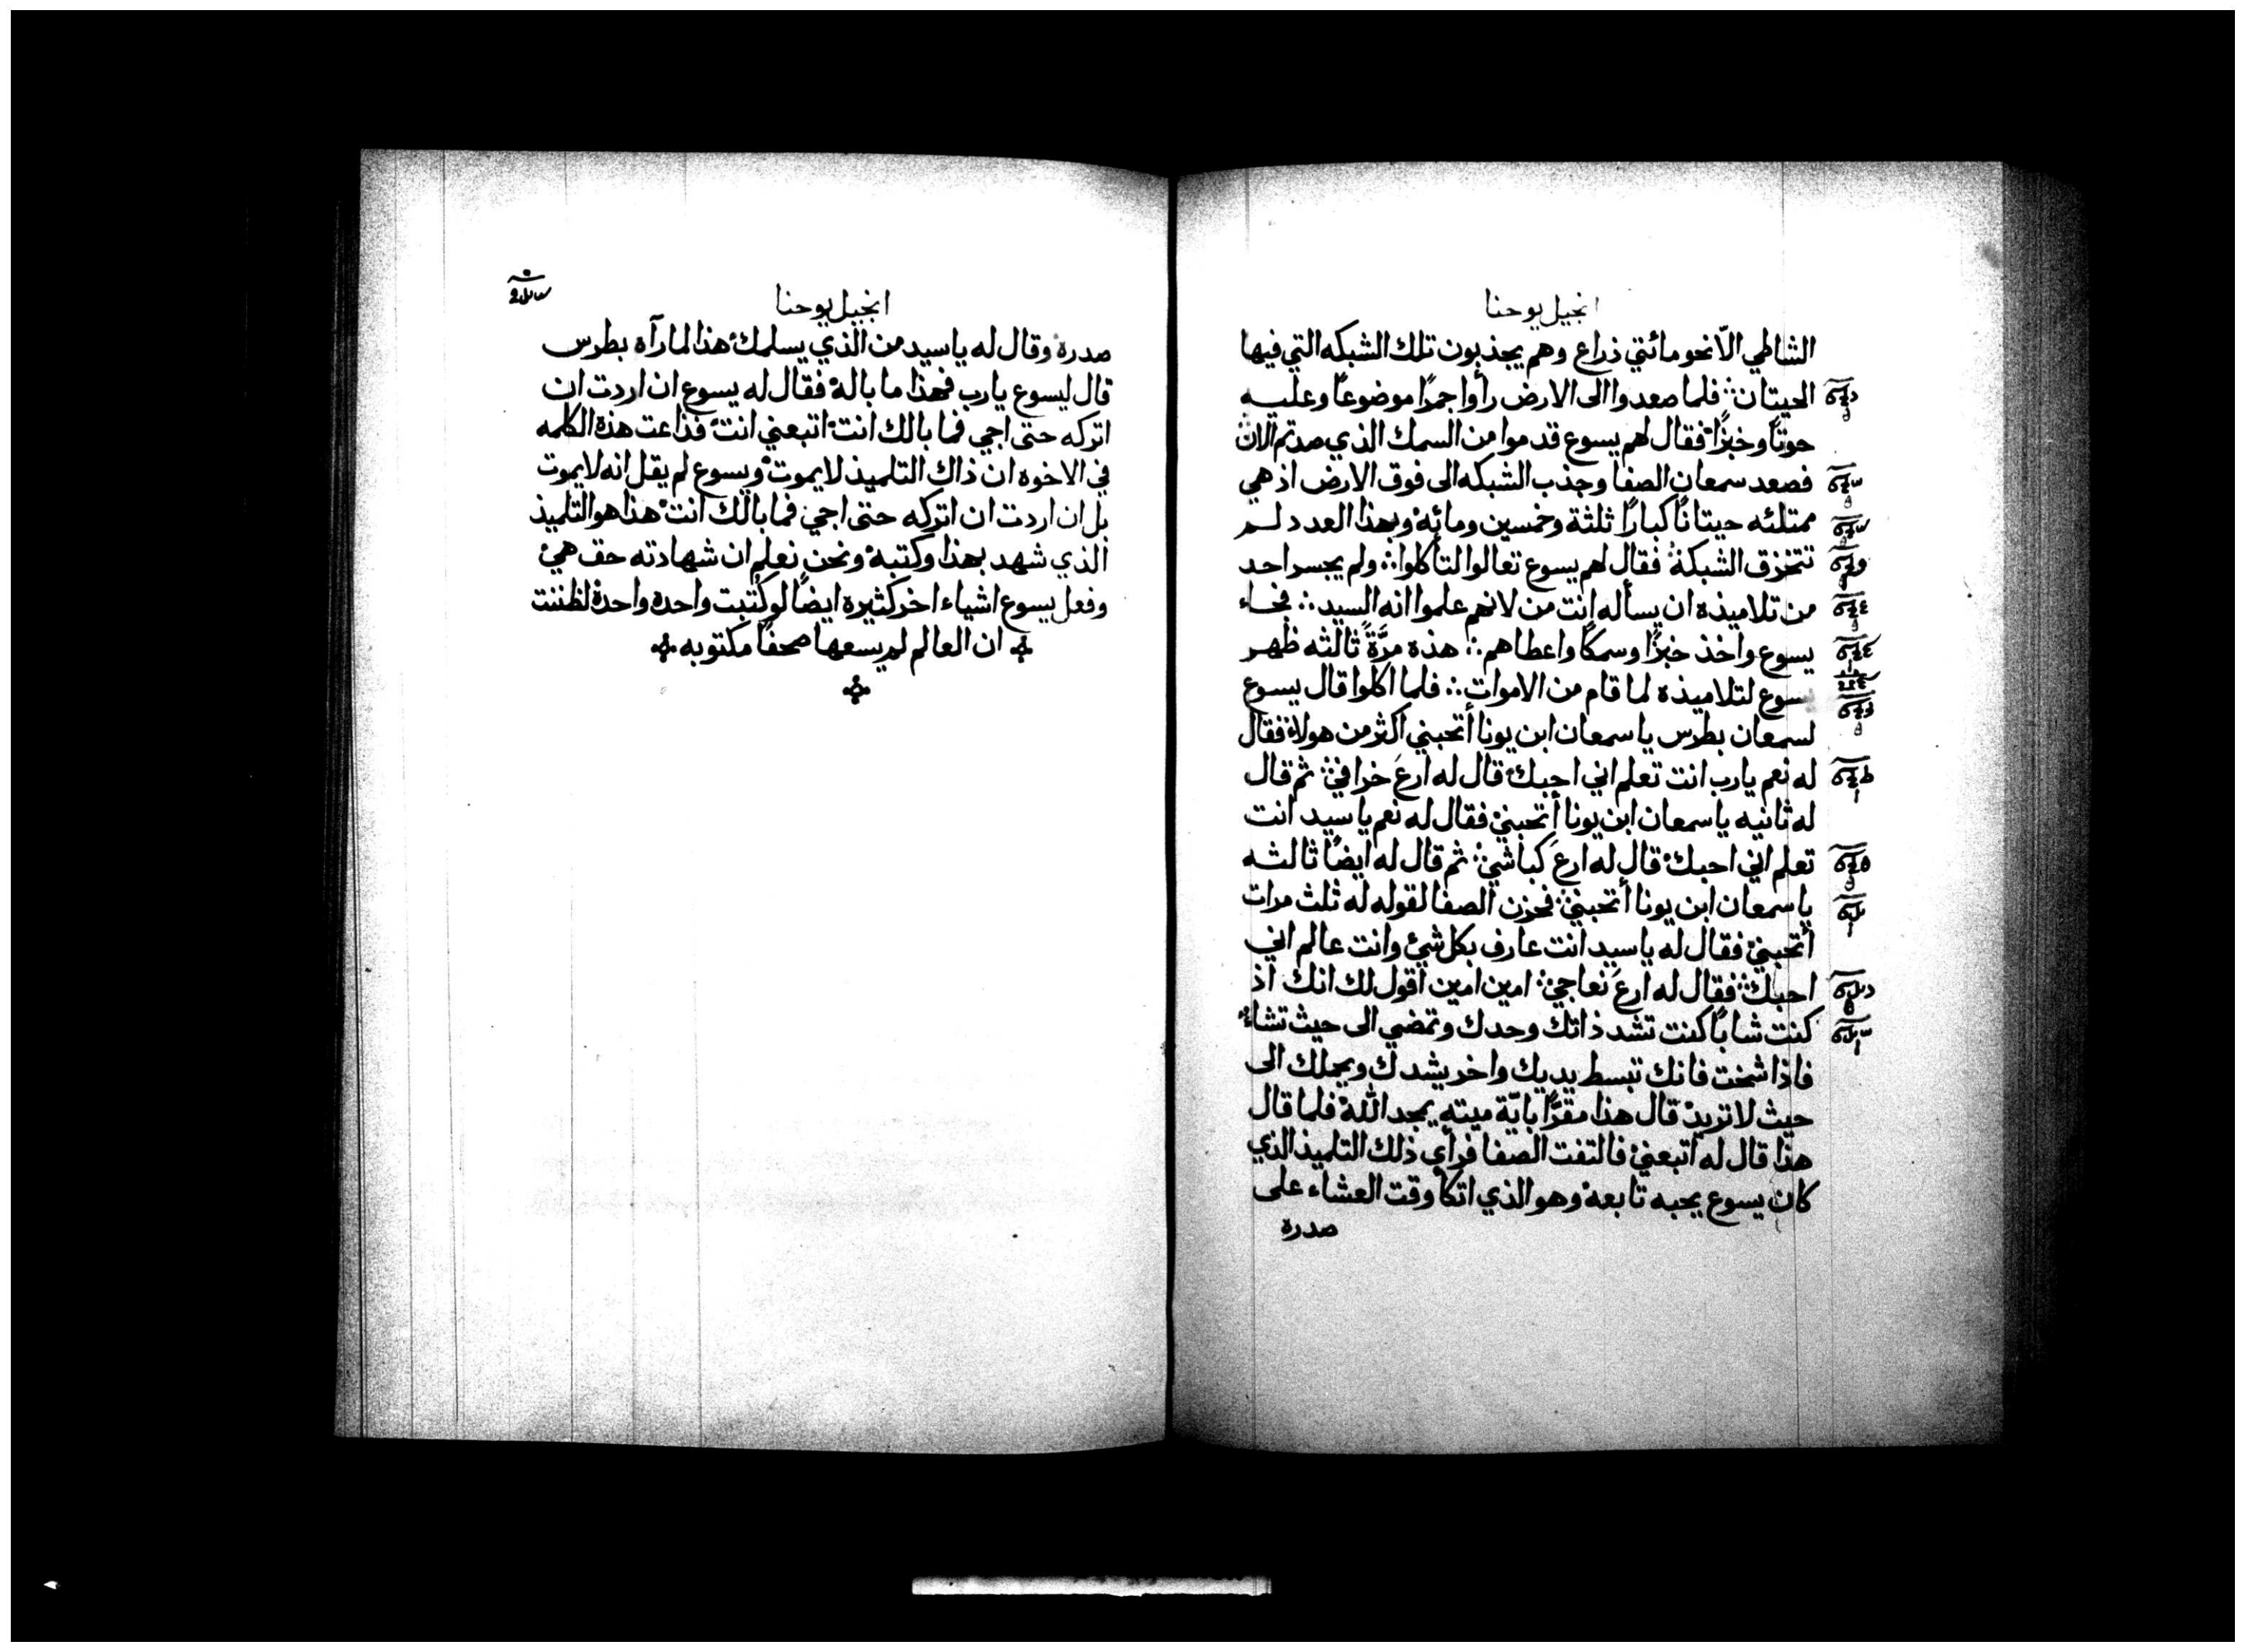 انجيل يوحنا
الشاطي الّا نحو مائتي ذراع وهم يجذبون تلك الشبكه التي فيها
الحيتان فلما صعدوا الى الارض راوا جمرًا موضوعًا وعليه
حوتًا وخبزًا فقال لهم يسوع قدموا من السمك الذي صدتم الان
فصعد سمعان الصفا وجذب الشبكه الى فوق الارض اذ هي
ممتلئه حيتانًا كبارًا ثلثة وخمسين ومائه وبهذا العدد لم
تتخزق الشبكة فقال لهم يسوع تعالوا لتأكلوا ولم يجسر احد
من تلاميذه ان يسأله انت من لانهم علموا انه السيد فجاء
يسوع واخذ خبزًا وسمكًا واعطاهم هذه مرَّةً ثالثه ظهر
يسوع لتلاميذه لما قام من الاموات فلما اكلوا قال يسوع
لسمعان بطرس يا سمعان ابن يونا أتحبني اكثر من هولاء فقال
له نعم يارب انت تعلم اني احبك قال له ارعَ خرافي ثم قال
له ثانيه يا سمعان ابن يونا أتحبني فقال له نعم يا سيد انت
تعلم اني احبك قال له ارعَ كباشي ثم قال له ايضًا ثالثه
يا سمعان ابن يونا أتحبني فحزن الصفا لقوله له ثلث مرات
أتحبني فقال له يا سيد انت عارف بكل شيء وانت عالم اني
احبك فقال له ارعَ نعاجي امين امين اقول لك انك اذ
كنت شابًا كنت تشد ذاتك وحدك وتمضي الى حيث تشاء
فاذا شخت فانك تبسط يديك واخر يشدك ويحملك الى
حيث لا تريد قال هذا مقرًّا بايّة ميته يمجد الله فلما قال
هذا قال له اتبعني فالتفت الصفا فرأي ذلك التلميذ الذي
كان يسوع يحبه تابعه وهو الذي اتكأ وقت العشاء على
صدره
انجيل يوحنا
صدره وقال له يا سيد من الذي يسلمك هذا لما رآه بطرس
قال ليسوع يارب فهذا ما باله فقال له يسوع ان اردت ان
اتركه حتى اجي فما بالك انت اتبعني انت فذاعت هذه الكلمه
في الاخوه ان ذاك التلميذ لا يموت ويسوع لم يقل انه لا يموت
بل ان اردت ان اتركه حتى اجي فما بالك انت هذا هو التلميذ
الذي شهد بهذا وكتبه ونحن نعلم ان شهادته حق هي
وفعل يسوع اشياء اخر كثيره ايضًا لو كتبت واحده واحدة لظننت
ان العالم لم يسعها صحفًا مكتوبه